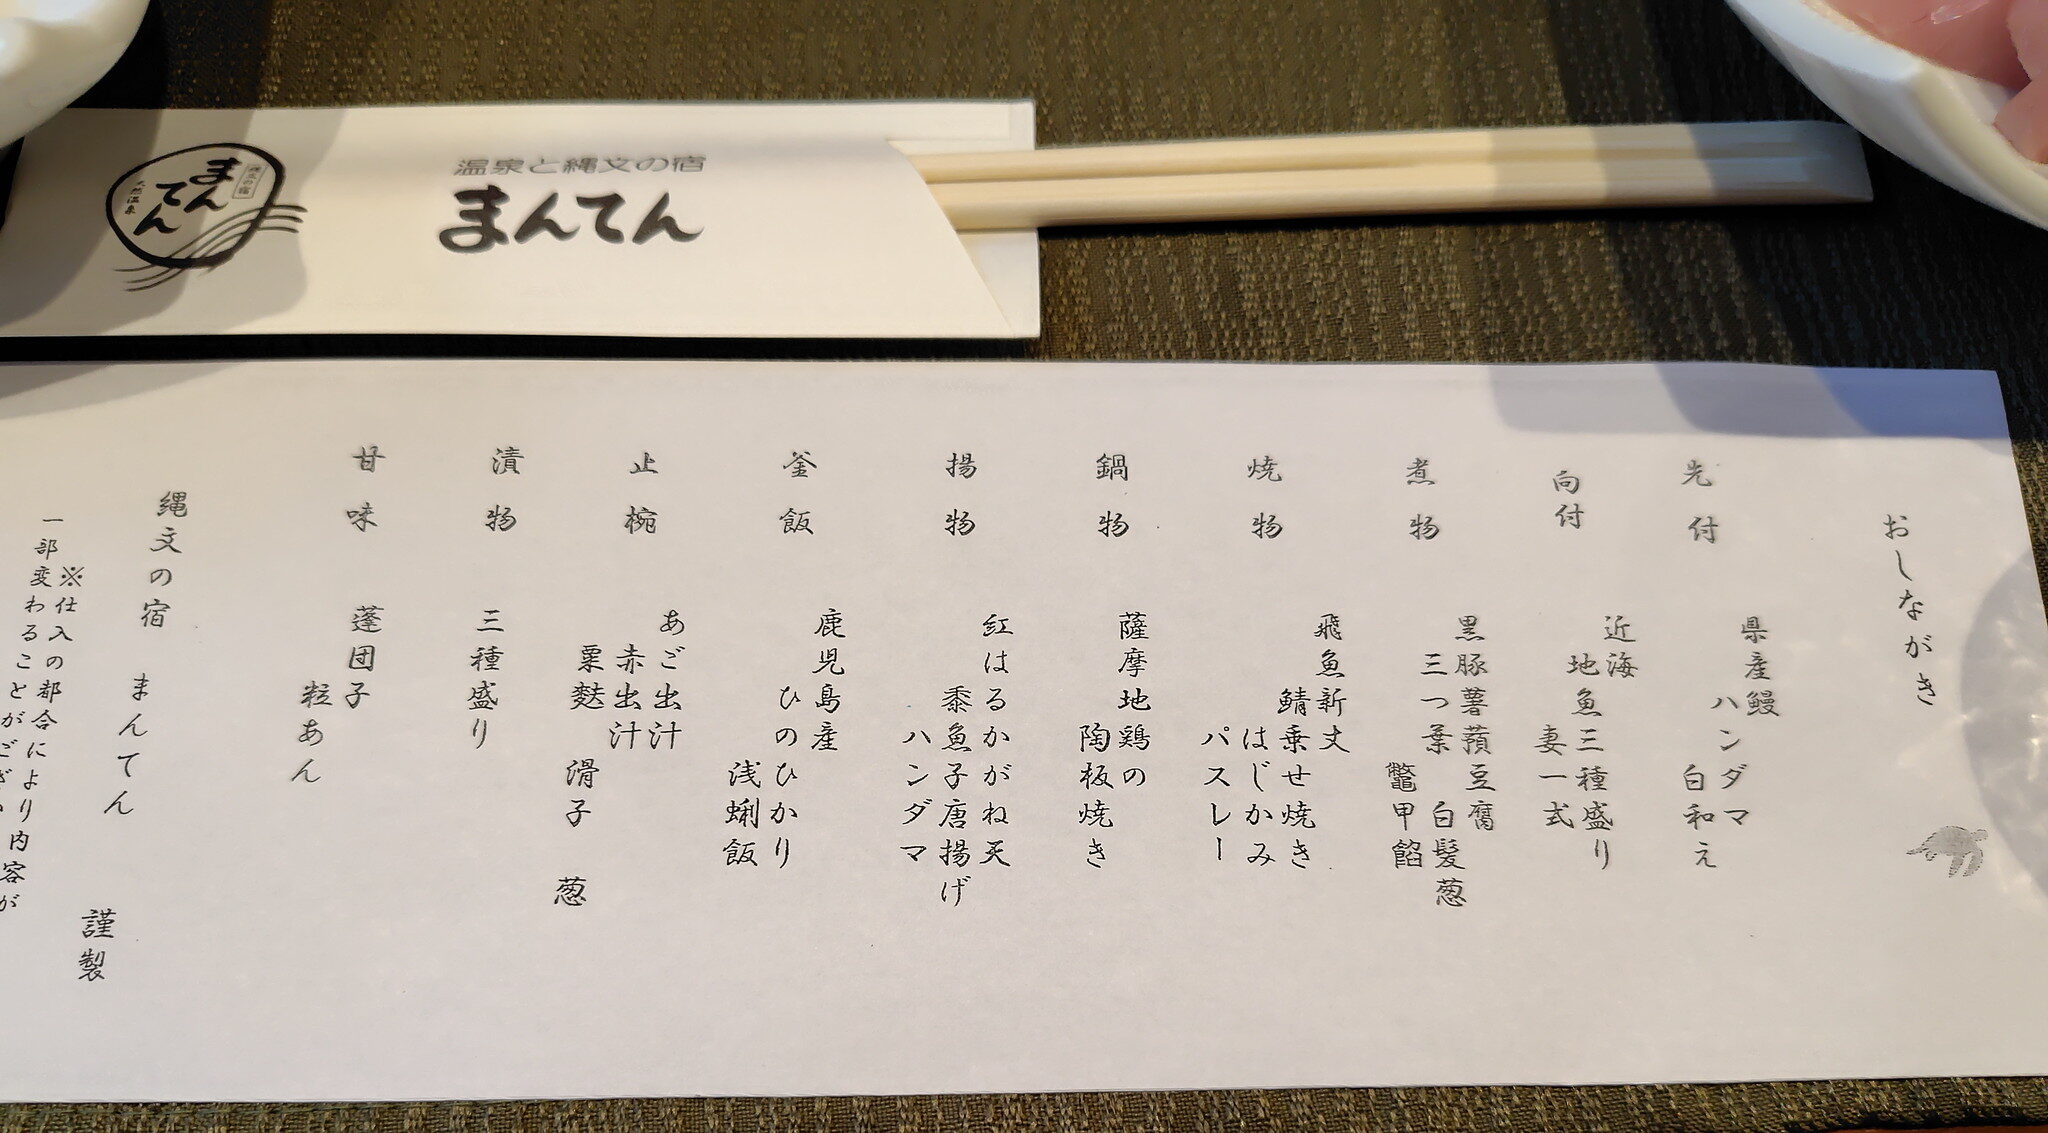 まんてん
天然温泉
温泉と縄文の宿
まんてん
おしながき
先付
県産鰻
ハンダマ
白和え
向付
近海
地魚三種盛り
妻一式
煮物
黒豚薯蕷豆腐
三つ葉 白髪葱
鼈甲餡
焼物
飛魚新丈
鯖乗せ焼き
はじかみ
パスレー
鍋物
薩摩地鶏の
陶板焼き
揚物
紅はるかがね天
黍魚子唐揚げ
ハンダマ
釜飯
鹿児島産
ひのひかり
浅蜊飯
止椀
あご出汁
赤出汁
粟麩 滑子 葱
漬物
三種盛り
甘味
蓬団子
粒あん
縄文の宿 まんてん 謹製
※仕入の都合により内容が
一部変わることがござい